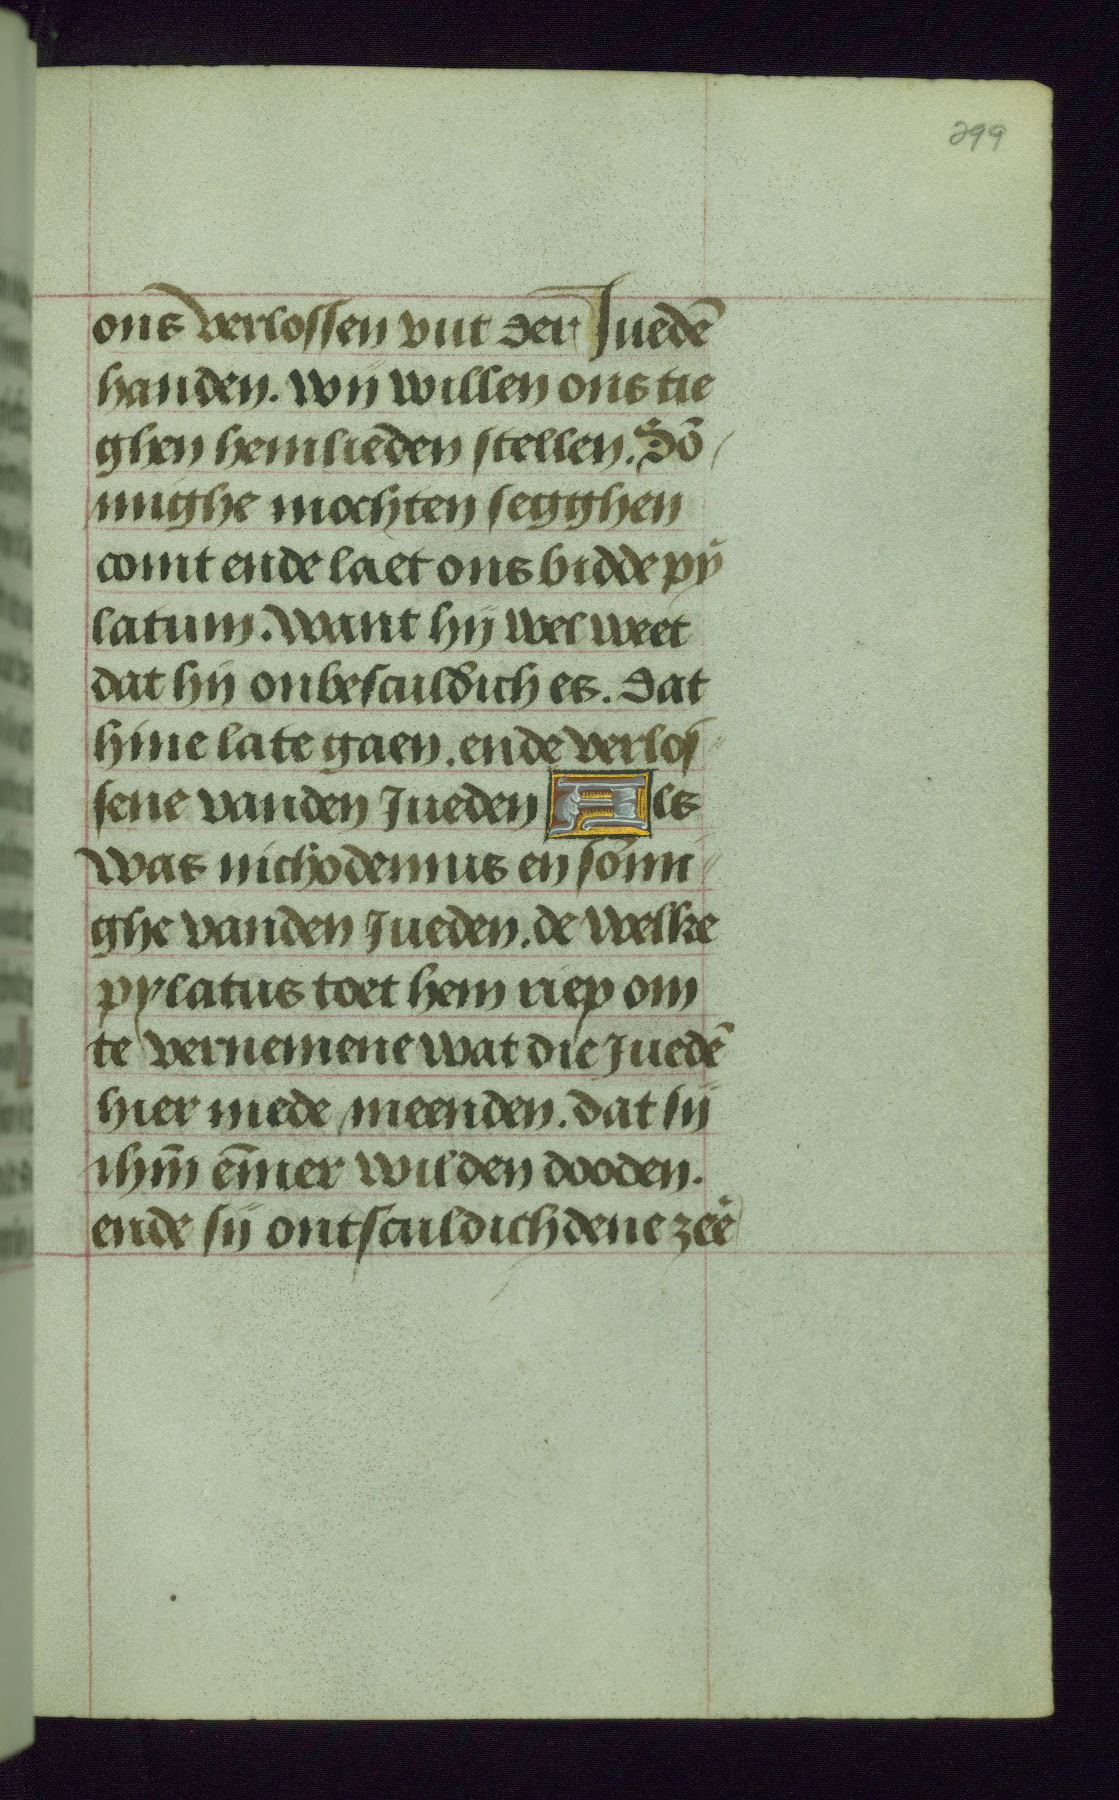 299
ons verlossen vut der Juedē
handen. wij willen ons tie
ghen hemlieden stellen. Sō
mighe mochten segghen
comt ende laet ons bidde pÿ
latum. Want hij wel weet
dat hij onbesculdich es. dat
hine late gaen. ende verlos
sene vanden Jueden Als
was nichodemus en somi
ghe vanden Jueden. de welke
pylatus toet hem riep om
te vernemene wat die Juedē
hier mede meenden. dat sij
ihm̄ em̄er wilden dooden.
ende sij ontsculdichdene zeē